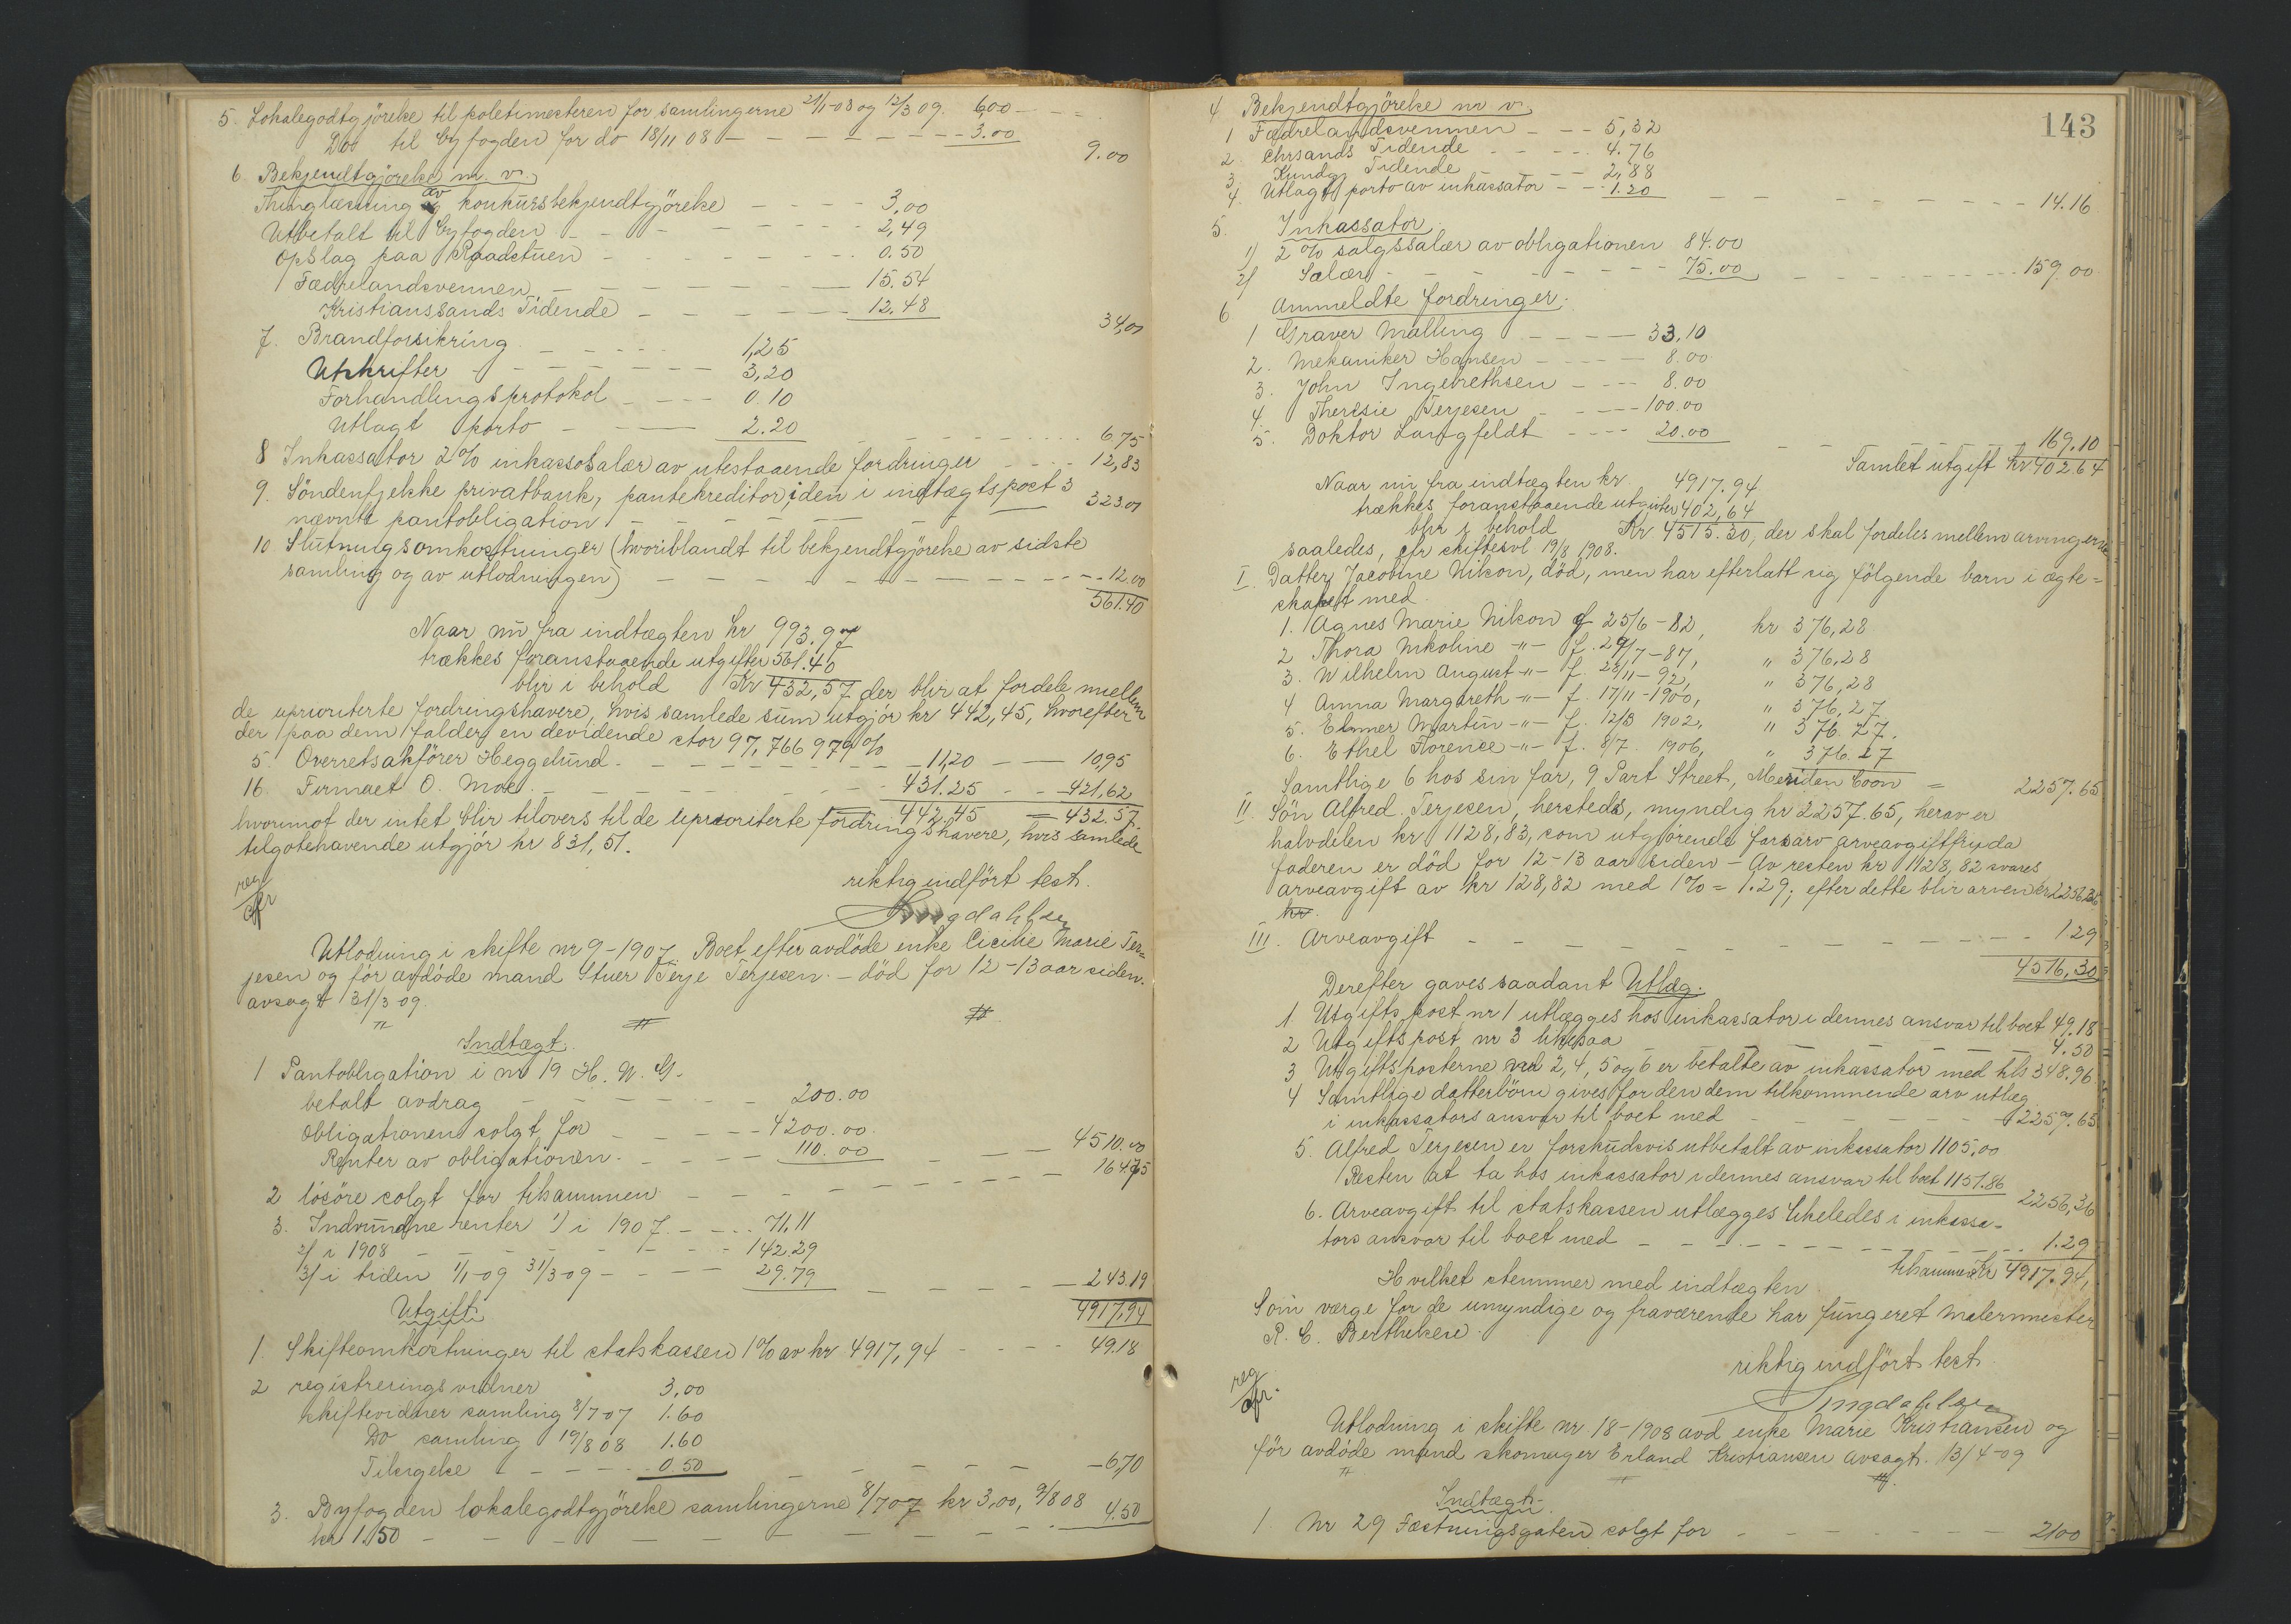 5. Lokalegodtgjörelse til politimesteren for samlingerne 21/1-08 og 12/3 09. 6,00 - - -
Do til byfogden for do 18/11 08 - - - - - - - - 3.00
9.00
6 Bekjendtgjörelse m. v.
Thinglæsning av konkursbekjendtgjörelse - - - - 3,00
Utbetalt til byfogden - - - - - - - - 2,49
Opslag paa Raadstuen - - - - - - - 0.50
Fædrelandsvennen - - - - - - - 15.54
Kristianssands Tidende - - - - - - 12.48
34,01
7. Brandforsikring - - - - 1,25
Utskrifter - - - - - - 3,20
Forhandlingsprotokol - - - 0.10
Utlagt porto - - - 2.20
6.75
8 Inkassator 2% inkassosalær av utestaaende fordringer - - - - 12,83
9. Söndenfjelske privatbank, pantekreditor i den i indtægtspost 3
nævnte pantobligation - - - - - - 323.01
10 Slutningsomkostninger (hvoriblandt til bekjendtgjörelse av sidste
samling og av utlodningen) - - - - - - - - - - 12.00
561.40
Naar nu fra indtægten kr 993.97
trækkes foranstaaende utgifter 561.40
blir i behold Kr 432,57 der blir at fordele mellem
de uprioriterte fordringshavere, hvis samlede sum utgjör kr 442,45, hvorefter
der paa dem falder en devidende stor 97,766 979 %
5. Overretssakförer Heggelund - - - - - - - - 11,20 - - 10,95
16. Firmaet O. Moe - - - - - - - 431.25 - - 421,62
442,45 = 432,57.
hvorimot der intet blir tilovers til de uprioriterte fordringshavere, hvis samlede
tilgodehavende utgjör kr 831,51.
riktig indfört test.
reg
cfr
Ingdahlsen
Utlodning i skifte nr 9-1907 Boet efter avdöde enke Cicilie Marie Ter=
jesen og för avdöde mand Stuer Terje Terjesen - död for 12-13 aar siden.
avsagt 31/3 09.
Indtægt.
1 Pantobligation i nr 19 H. N. G.
betalt avdrag - - - - - - 200.00
Obligationen solgt for - - - - 4200.00
Renter av obligationen - - - - 110.00 - - - 4510.00
2 lösöre solgt for tilsammen - - - - - - - - - 164.75
3. Indvundne renter 1) i 1907 - - - 71,11
2) i 1908 - - - - - - - - 142.29
3) i tiden 1/1-09 31/3-09 - - - - 29.79 - - - - 243.19
4917.94
Utgift
1. Skifteomkostninger til statskassen 1% av kr 4917,94 - - - - 49.18
2 registreringsvidner 3,00
skiftevidner samling 8/7 07 1.60
Do samling 19/8 08 1.60
Tilsigelse - - - - - 0.50 - - - - - - 6,70
3. Byfogden lokalegodtgjörelse samlingerne 8/7 07 kr 3,00, 9/8 08
kr 1.50 - - - - - - - - - - - 4.50
143
4 Bekjendtgjörelse m. v.
1 Fædrelandsvennen - - - 5,32
2. Chrsands Tidende - - - - 4.76
3. Kundg. Tidende - - - 2,88
4. Utlagt porto av inkassator - - - 1.20 - - - - - - - 14.16
5. Inkassator.
1) 2% salgssalær av obligationen 84.00
2) Salær - - - - - - - 75.00 - - - - - - - 159.00
6 Anmeldte fordringer.
1 Graver Malling - - - - 33,10
2. Mekaniker Hansen - - - - 8.00
3. John Ingebrethsen - - - 8.00
4. Theresie Terjesen - - - - 100.00
5. Doktor Langfeldt - - - - 20.00 - - - - - 169.10
Samlet utgift Kr 402.64
Naar nu fra indtægten kr 4917.94
trækkes foranstaaende utgifter 402,64
blir i behold Kr 4515.30, der skal fordeles mellem arvingerne
saaledes, cfr skiftesvl 19/8 1908.
I. Datter Jacobine Nilson, död, men har efterlatt sig fölgende barn i ægte=
skapet med
1. Agnes Marie Nilson f 25/6-82, kr 376,28
2 Thora Nikoline -"- f. 29/7-87, " 376,28
3. Wilhelm August -"- f. 28/11-92, " 376,28
4 Anna Margareth -"- f. 17/11-1900, " 376,27
5. Elmer Martin -"- f. 12/3 1902, " 376.27.
6. Ethel Florence -"- f. 8/7 1906, " 376.27
Samtlige 6 hos sin far, 9 Part Street, Meriden Conn = 2257.65
II. Sön Alfred Terjesen, hersteds, myndig kr 2257.65, herav er
halvdelen kr 1128,83, som utgjörende farsarv arveavgiftfri, da
faderen er död for 12-13 aar siden - Av resten kr 1128,82 svares
arveavgift av kr 128,82 med 1% = 1.29; efter dette blir arven kr 2256.36
kr.
III. Arveavgift - - - - - - - - - - - - - 1.29
4515,30
Derefter gaves saadant Utlæg.
1. Utgiftspost nr 1 utlægges hos inkassator i dennes ansvar til boet 49.18
2 Utgiftspost nr 3 likesaa - - - - - - - - 4.50
3 Utgiftsposterne 2, 4, 5 og 6 er betalte av inkassator med tils 348.96
4 Samtlige datterbörn gives for den dem tilkommende arv utlæg
i inkassators ansvar til boet med - - - - - - - 2257.65
5. Alfred Terjesen er forskudsvis utbetalt av inkassator 1105,00
Resten at ta hos inkassator i dennes ansvar til boet 1151.36
2256,36
6. Arveavgift til statskassen utlægges likeledes i inkassa=
tors ansvar til boet med - - - - - - - - - - - 1.29
tilsammen Kr 4917.94,
Hvilket stemmer med indtægten.
Som værge for de umyndige og fraværende har fungeret malermester
R. C. Berthelsen.
riktig indfört test.
reg
cfr.
Ingdahlsen
Utlodning i skifte nr 18-1908 avd enke Marie Kristiansen og
för avdöde mand skomager Erland Kristiansen avsagt 13/4-09
Indtægt.
1. Nr 29 Fæstningsgaten solgt for - - - - - - - 2100